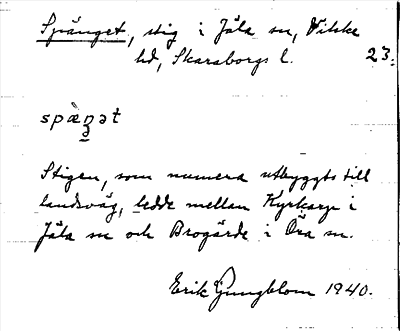 Spånget, stig i Jäla sn, Vilske
hd, Skaraborgs l. 23.
spæ̀ŋət
Stigen, som numera utbyggts till
landsväg, ledde mellan Kyrkarp i
Jäla sn och Brogärde i Öra sn.
Erik Ljungblom 1940.